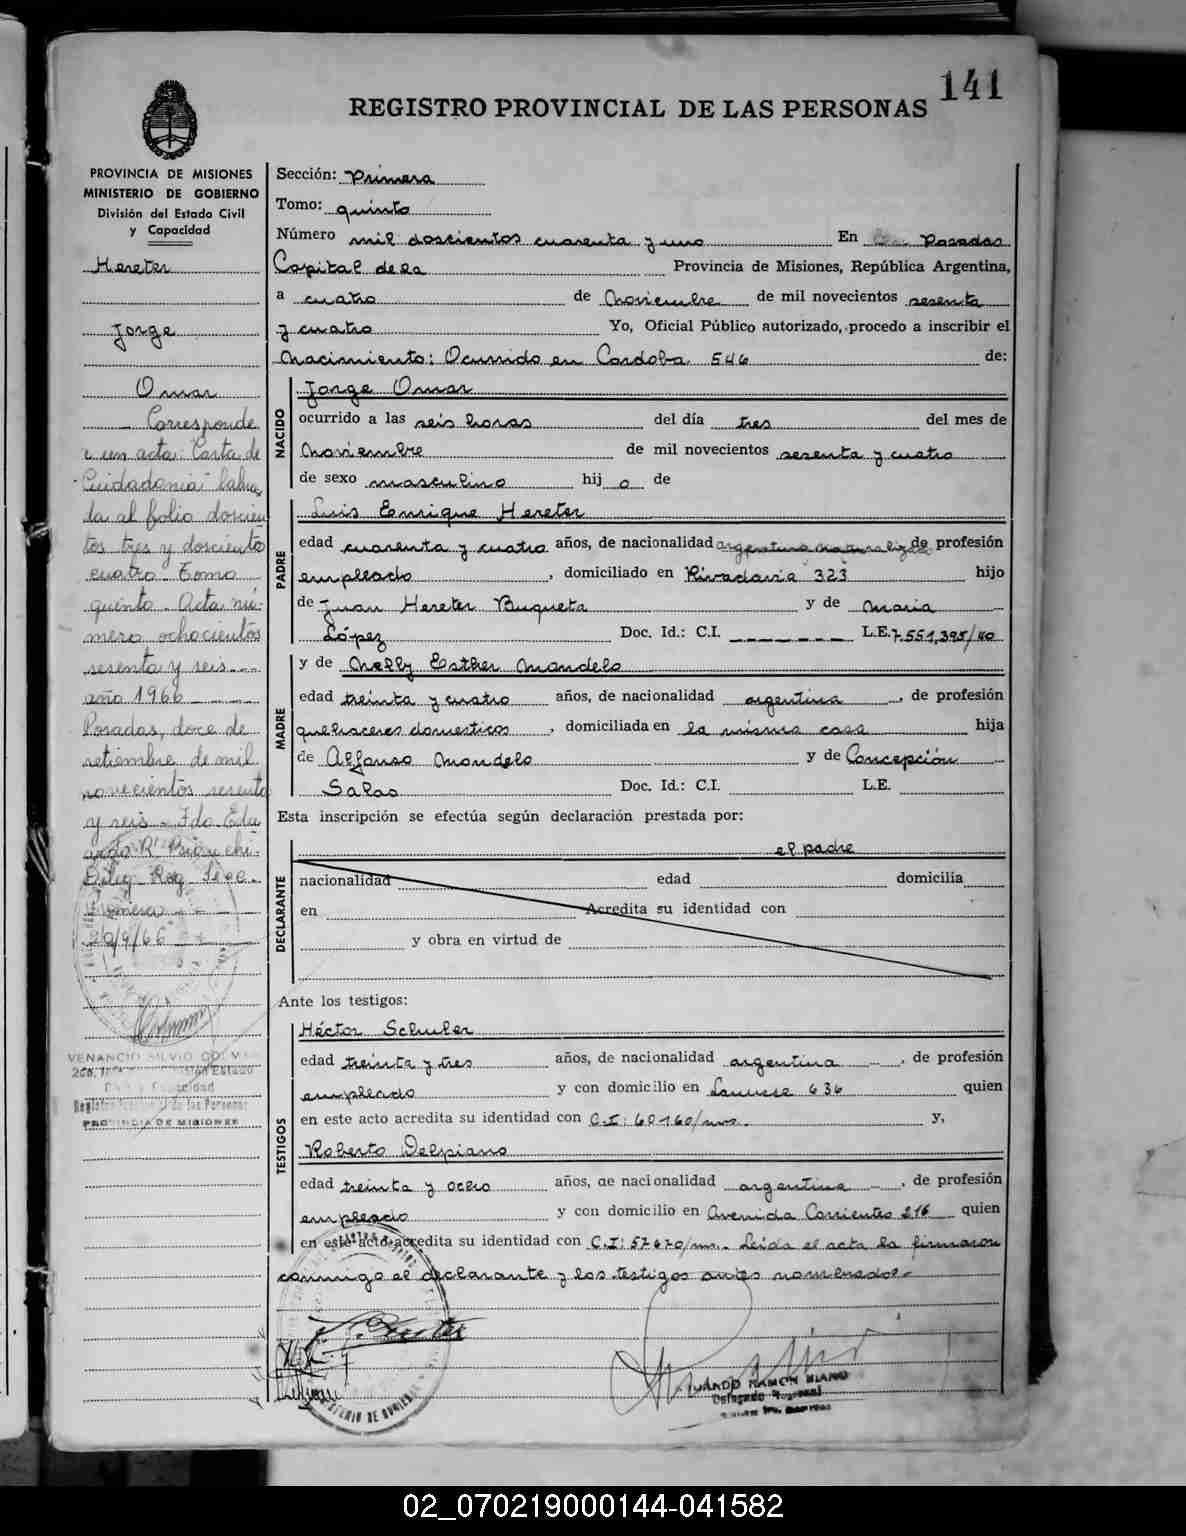 141
REGISTRO PROVINCIAL DE LAS PERSONAS
PROVINCIA DE MISIONES
MINISTERIO DE GOBIERNO
División del Estado Civil
y Capacidad
Hereter
Jorge
Omar
Corresponde
en acta: Carta de
Ciudadania
da al folio doscien
tos tres y dosciento
cuatro Tomo
quinto. Acta nú-
mero ochocientos
sesenta y seis
año 1966
Posadas, doce de
setiembre de mil
novecientos sesenta
y seis - Fdo. Edu
ardo R. Bianchi-
Deleg. Reg. Secc.
Primera
20/9/66
VENANCIO SILVIO
Registro Provincial de las Personas
PROVINCIA DE MISIONES
Sección: Primera
Tomo: quinto
Número mil doscientos cuarenta y uno En Posadas
Capital de la Provincia de Misiones, República Argentina,
a cuatro de Noviembre de mil novecientos sesenta
y cuatro Yo, Oficial Público autorizado, procedo a inscribir el
Nacimiento: Ocurrido en Cordoba 546 de:
NACIDO
Jorge Omar
ocurrido a las seis horas del día tres del mes de
Noviembre de mil novecientos sesenta y cuatro
de sexo masculino hij o de
PADRE
Luis Enrique Hereter
edad cuarenta y cuatro años, de nacionalidad argentino naturalizado de profesión
empleado, domiciliado en Rivadavia 323 hijo
de Juan Hereter Buqueta y de Maria
López Doc. Id.: C.I. L.E. 7.551.395/40
MADRE
y de Nelly Esther Mandelo
edad treinta y cuatro años, de nacionalidad argentina, de profesión
quehaceres domesticos, domiciliada en la misma casa hija
de Alfonso Mondelo y de Concepción
Salas Doc. Id.: C.I. L.E.
Esta inscripción se efectúa según declaración prestada por:
el padre
DECLARANTE
nacionalidad edad domicilia
en Acredita su identidad con
y obra en virtud de
Ante los testigos:
TESTIGOS
Héctor Schuler
edad treinta y tres años, de nacionalidad argentina, de profesión
empleado y con domicilio en Lanusse 636 quien
en este acto acredita su identidad con C.I: 60160/mns. y,
Roberto Delpiano
edad treinta y ocho años, de nacionalidad argentina, de profesión
empleado y con domicilio en Avenida Corrientes 216 quien
en este acto acredita su identidad con C.I: 57670/ms. Leida el acta la firmaron
conmigo el declarante y los testigos antes nombrados.
RAMON
Delegado Regional
02_070219000144-041582